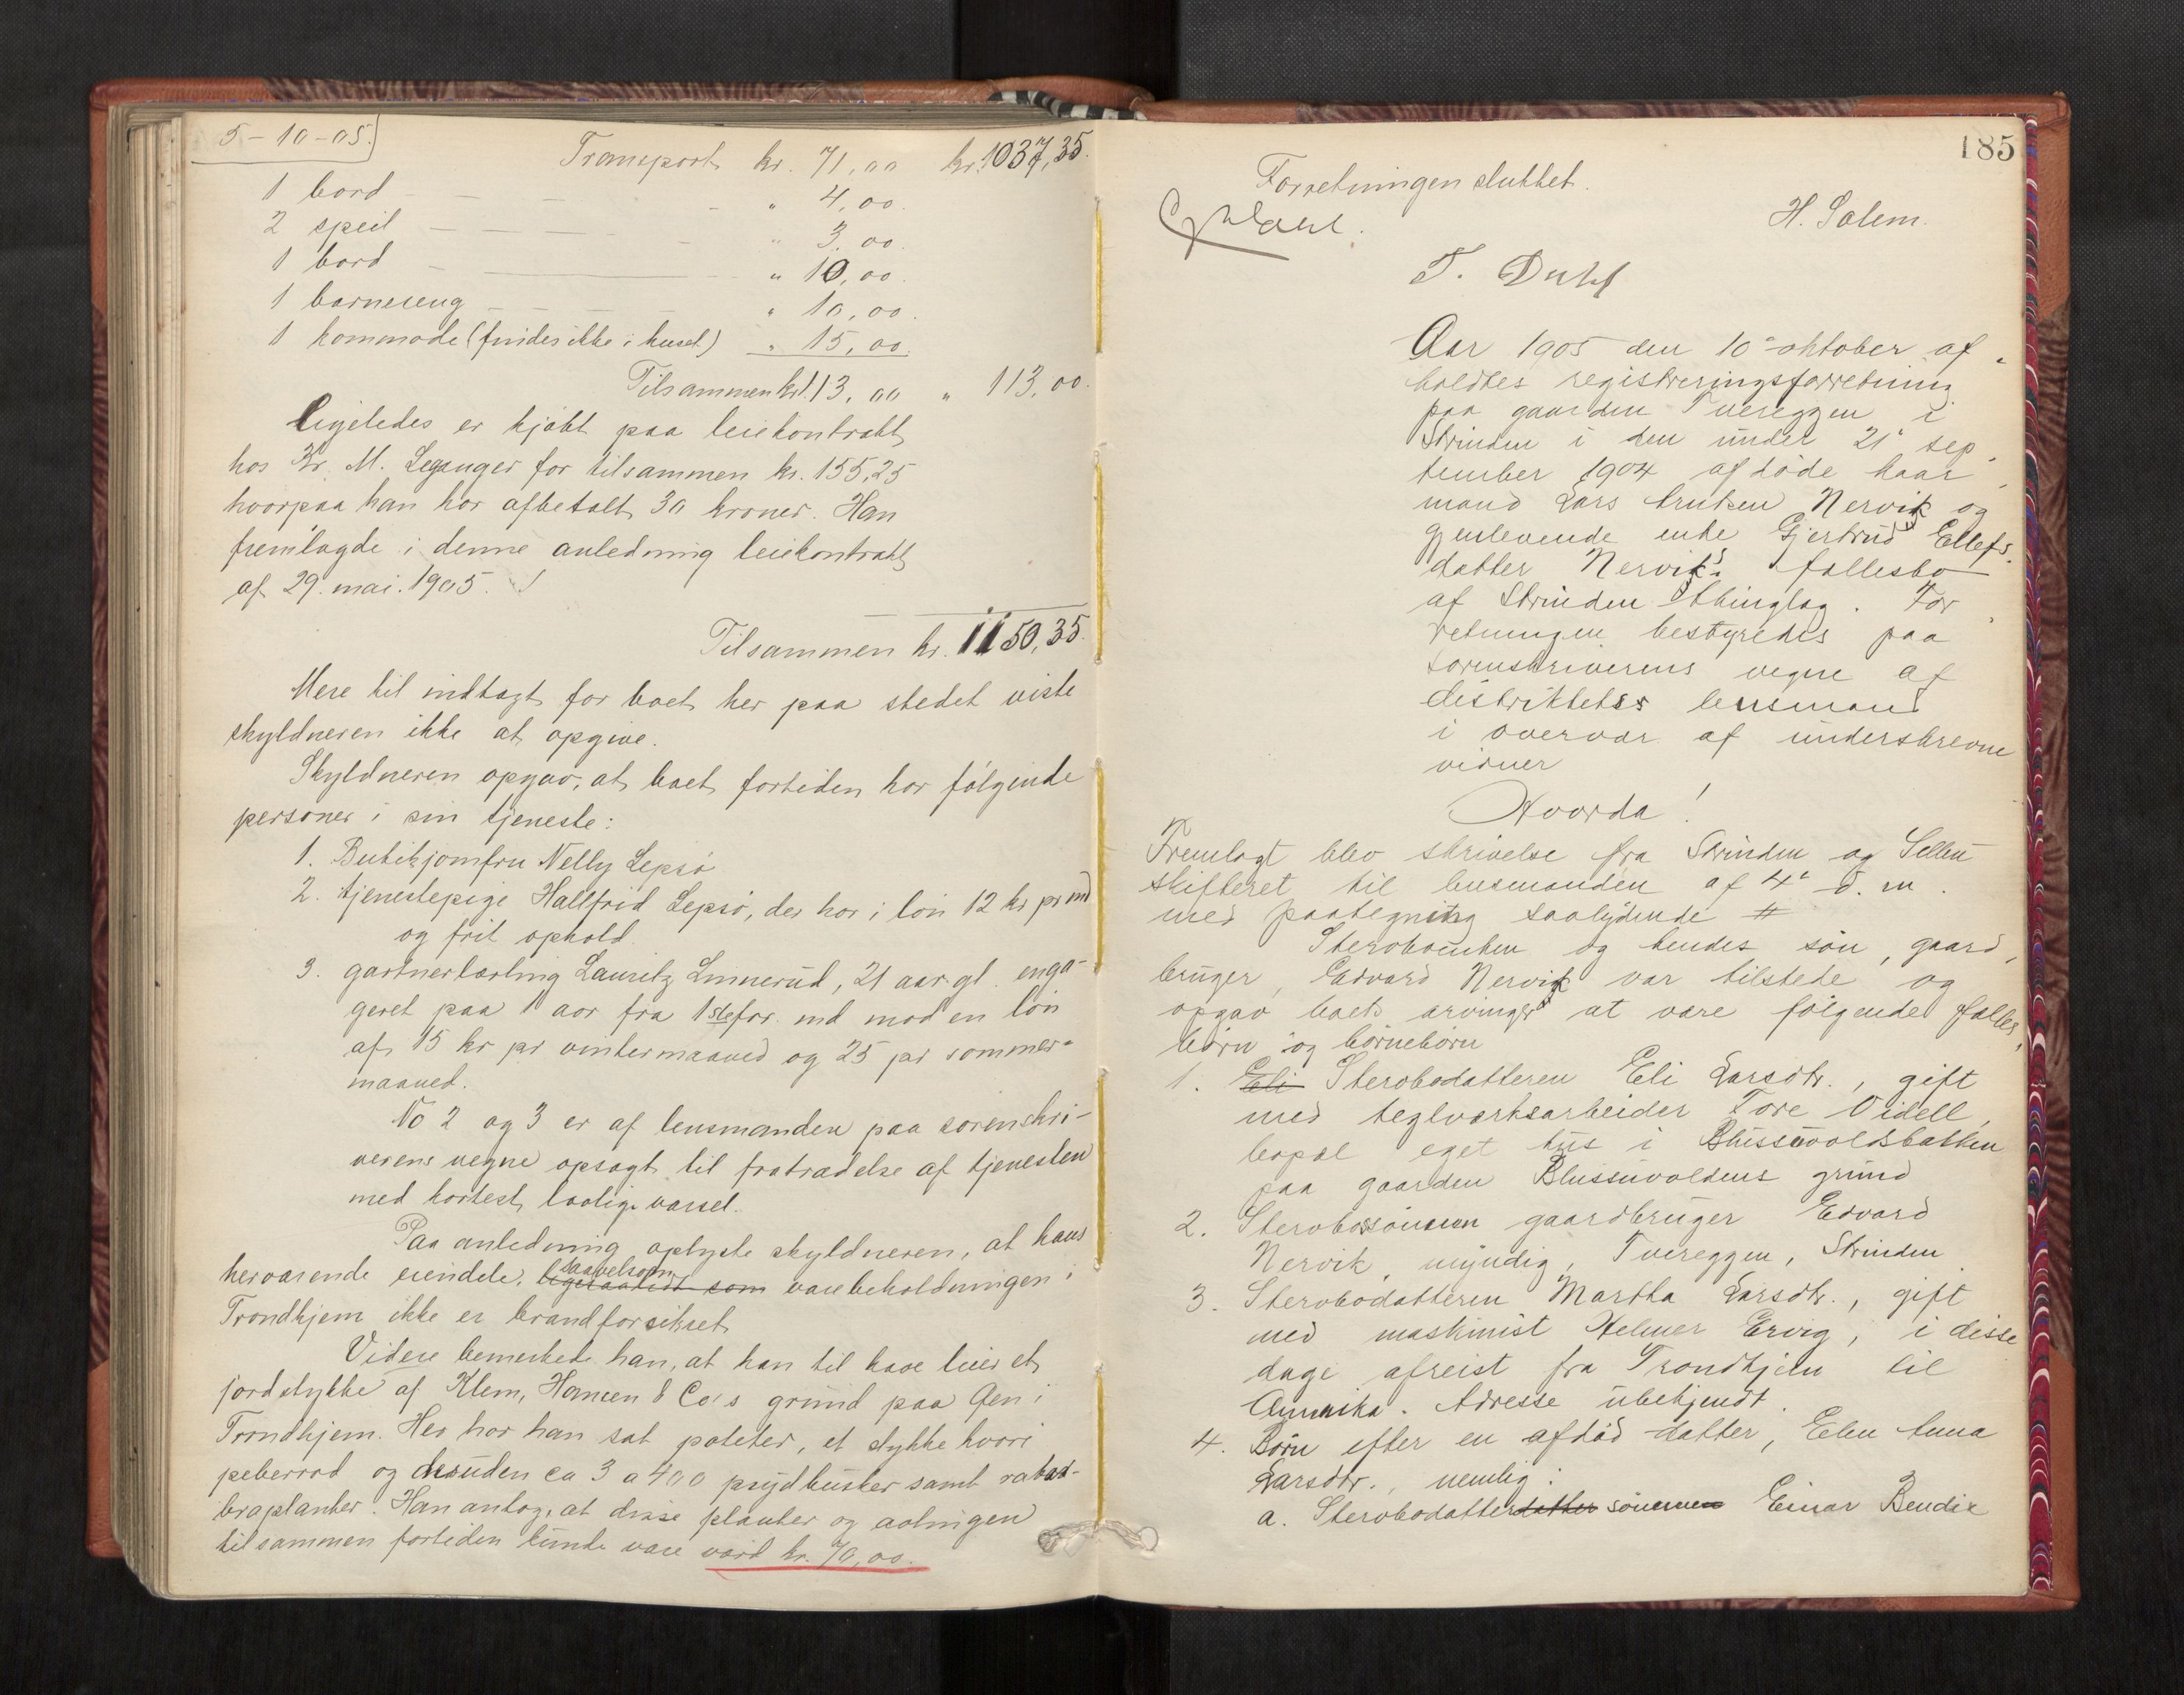 5-10-05.
Transport kr. 71,00 kr. 1037,35.
1 bord - - - " 4,00.
2 speil - - - - - " 3,00.
1 bord - - " 10,00.
1 barneseng - - - " 10,00.
1 kommode (findes ikke i huset) " 15,00.
Tilsammen kr. 113,00 " 113,00.
Ligeledes er kjøbt paa leiekontrakt
hos Kr. M. for tilsammen kr. 155,25
hvorpaa han har afbetalt 30 kroner. Han
fremlagde i denne anledning leiekontrakt
af 29. mai. 1905.
Tilsammen kr. 1150,35.
Mere til indtægt for boet her paa stedet viste
skyldneren ikke at opgive.
Skyldneren opgav, at boet fortiden har følgende
personer i sin tjeneste:
1. Butikjomfru Nelly Lepsø
2. tjenestepige Hallfrid Lepsø, der har i løn 12 kr pr md
og frit ophold.
3. gartnerlærling Lauritz Linnerud, 21 aar gl. enga-
geret paa 1 aar fra 1ste for. md mod en løn
af 15 kr pr vintermaaned og 25 pr sommer-
maaned.
No 2 og 3 er af lensmanden paa sorenskri-
verens vegne opsagt til fratrædelse af tjenesten
med kortest lovlige varsel.
Paa anledning oplyste skyldneren, at hans
herværende eiendele, saavelsom varebeholdningen i
Trondhjem ikke er brandforsikret.
Videre bemerkede han, at han til have leier et
jordstykke af Klem, Hansen & Co's grund paa Øen i
Trondhjem. Her har han sat poteter, et stykke hvori
peberrod og desuden ca 3 a 400 prydbusker samt rabar-
braplanter. Han antog, at disse planter og avlingen
tilsammen fortiden kunde være værd kr. 70,00.
185
Forretningen sluttet.
H. Solem.
T. Dahl
Aar 1905 den 10de oktober af-
holdtes registreringsforretning
paa gaarden Tvereggen i
Strinden i den under 21' sep-
tember 1904 afdøde kaar-
mand Lars Knutsen Nervik og
gjenlevende enke Gjertrud Ellefs-
datter Nervik's fællesbo
af Strinden thinglag. For-
retningen bestyredes paa
sorenskriverens vegne af
distriktets lensmand
i overvær af underskrevne
vidner
Hvorda!
Fremlagt blev skrivelse fra Strinden og Selbu
skifteret til lensmanden af 4' d. m.
med paategning saalydende #
Stervboenken og hendes søn, gaard-
bruger, Edvard Nervik var tilstede og
opgav boets arvinger at være følgende fælles-
børn og børnebørn
1. Eli Stervbodatteren Eli Larsdtr., gift
med teglværksarbeider Tore Videll,
bopæl eget hus i Blussuvoldsbakken
paa gaarden Blussuvoldens grund
2. Stervbosønnen gaardbruger Edvard
Nervik, myndig, Tvereggen, Strinden.
3. Stervbodatteren Martha Larsdtr., gift
med maskinist Helmer Ervig, i disse
dage afreist fra Trondhjem til
Amerika. Adresse ubekjendt.
4. Børn efter en afdød datter, Elen Anna
Larsdtr., nemlig:
a. Stervbodatterdatter sønnen Einar Bendix